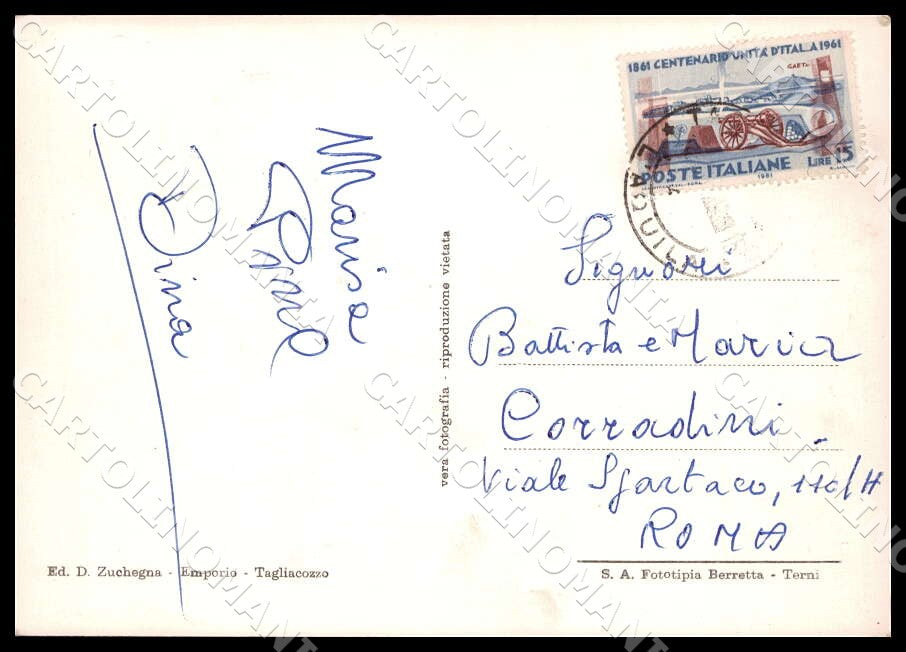 1861 CENTENARIO UNITÀ D'ITALIA 1961
GAETA
POSTE ITALIANE
LIRE 15
1961
L'AQUILA
Marisa
Dina
vera fotografia - riproduzione vietata
Signori
Battista e Maria
Corradini.
Viale Spartaco, 110/H
ROMA
Ed. D. Zuchegna - Emporio - Tagliacozzo
S. A. Fototipia Berretta - Terni
CARTOLINOMANIA